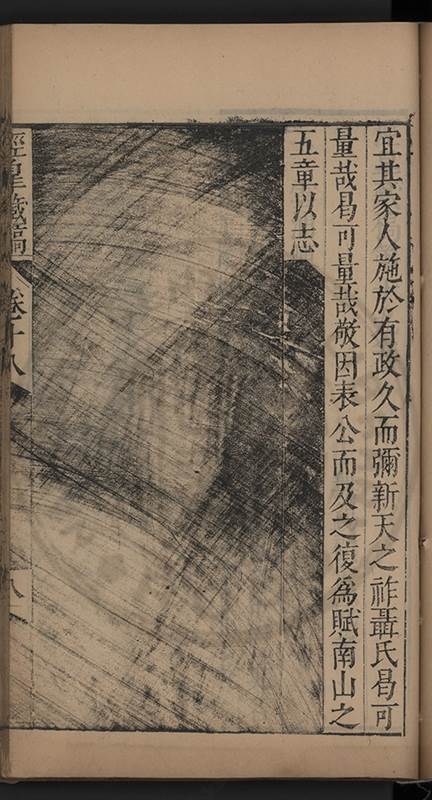 宜其家人施於有政久而彌新天之祚聶氏曷可
量哉曷可量哉敬因表公而及之復為賦南山之
五章以志
涇皋藏稿
卷十八
八